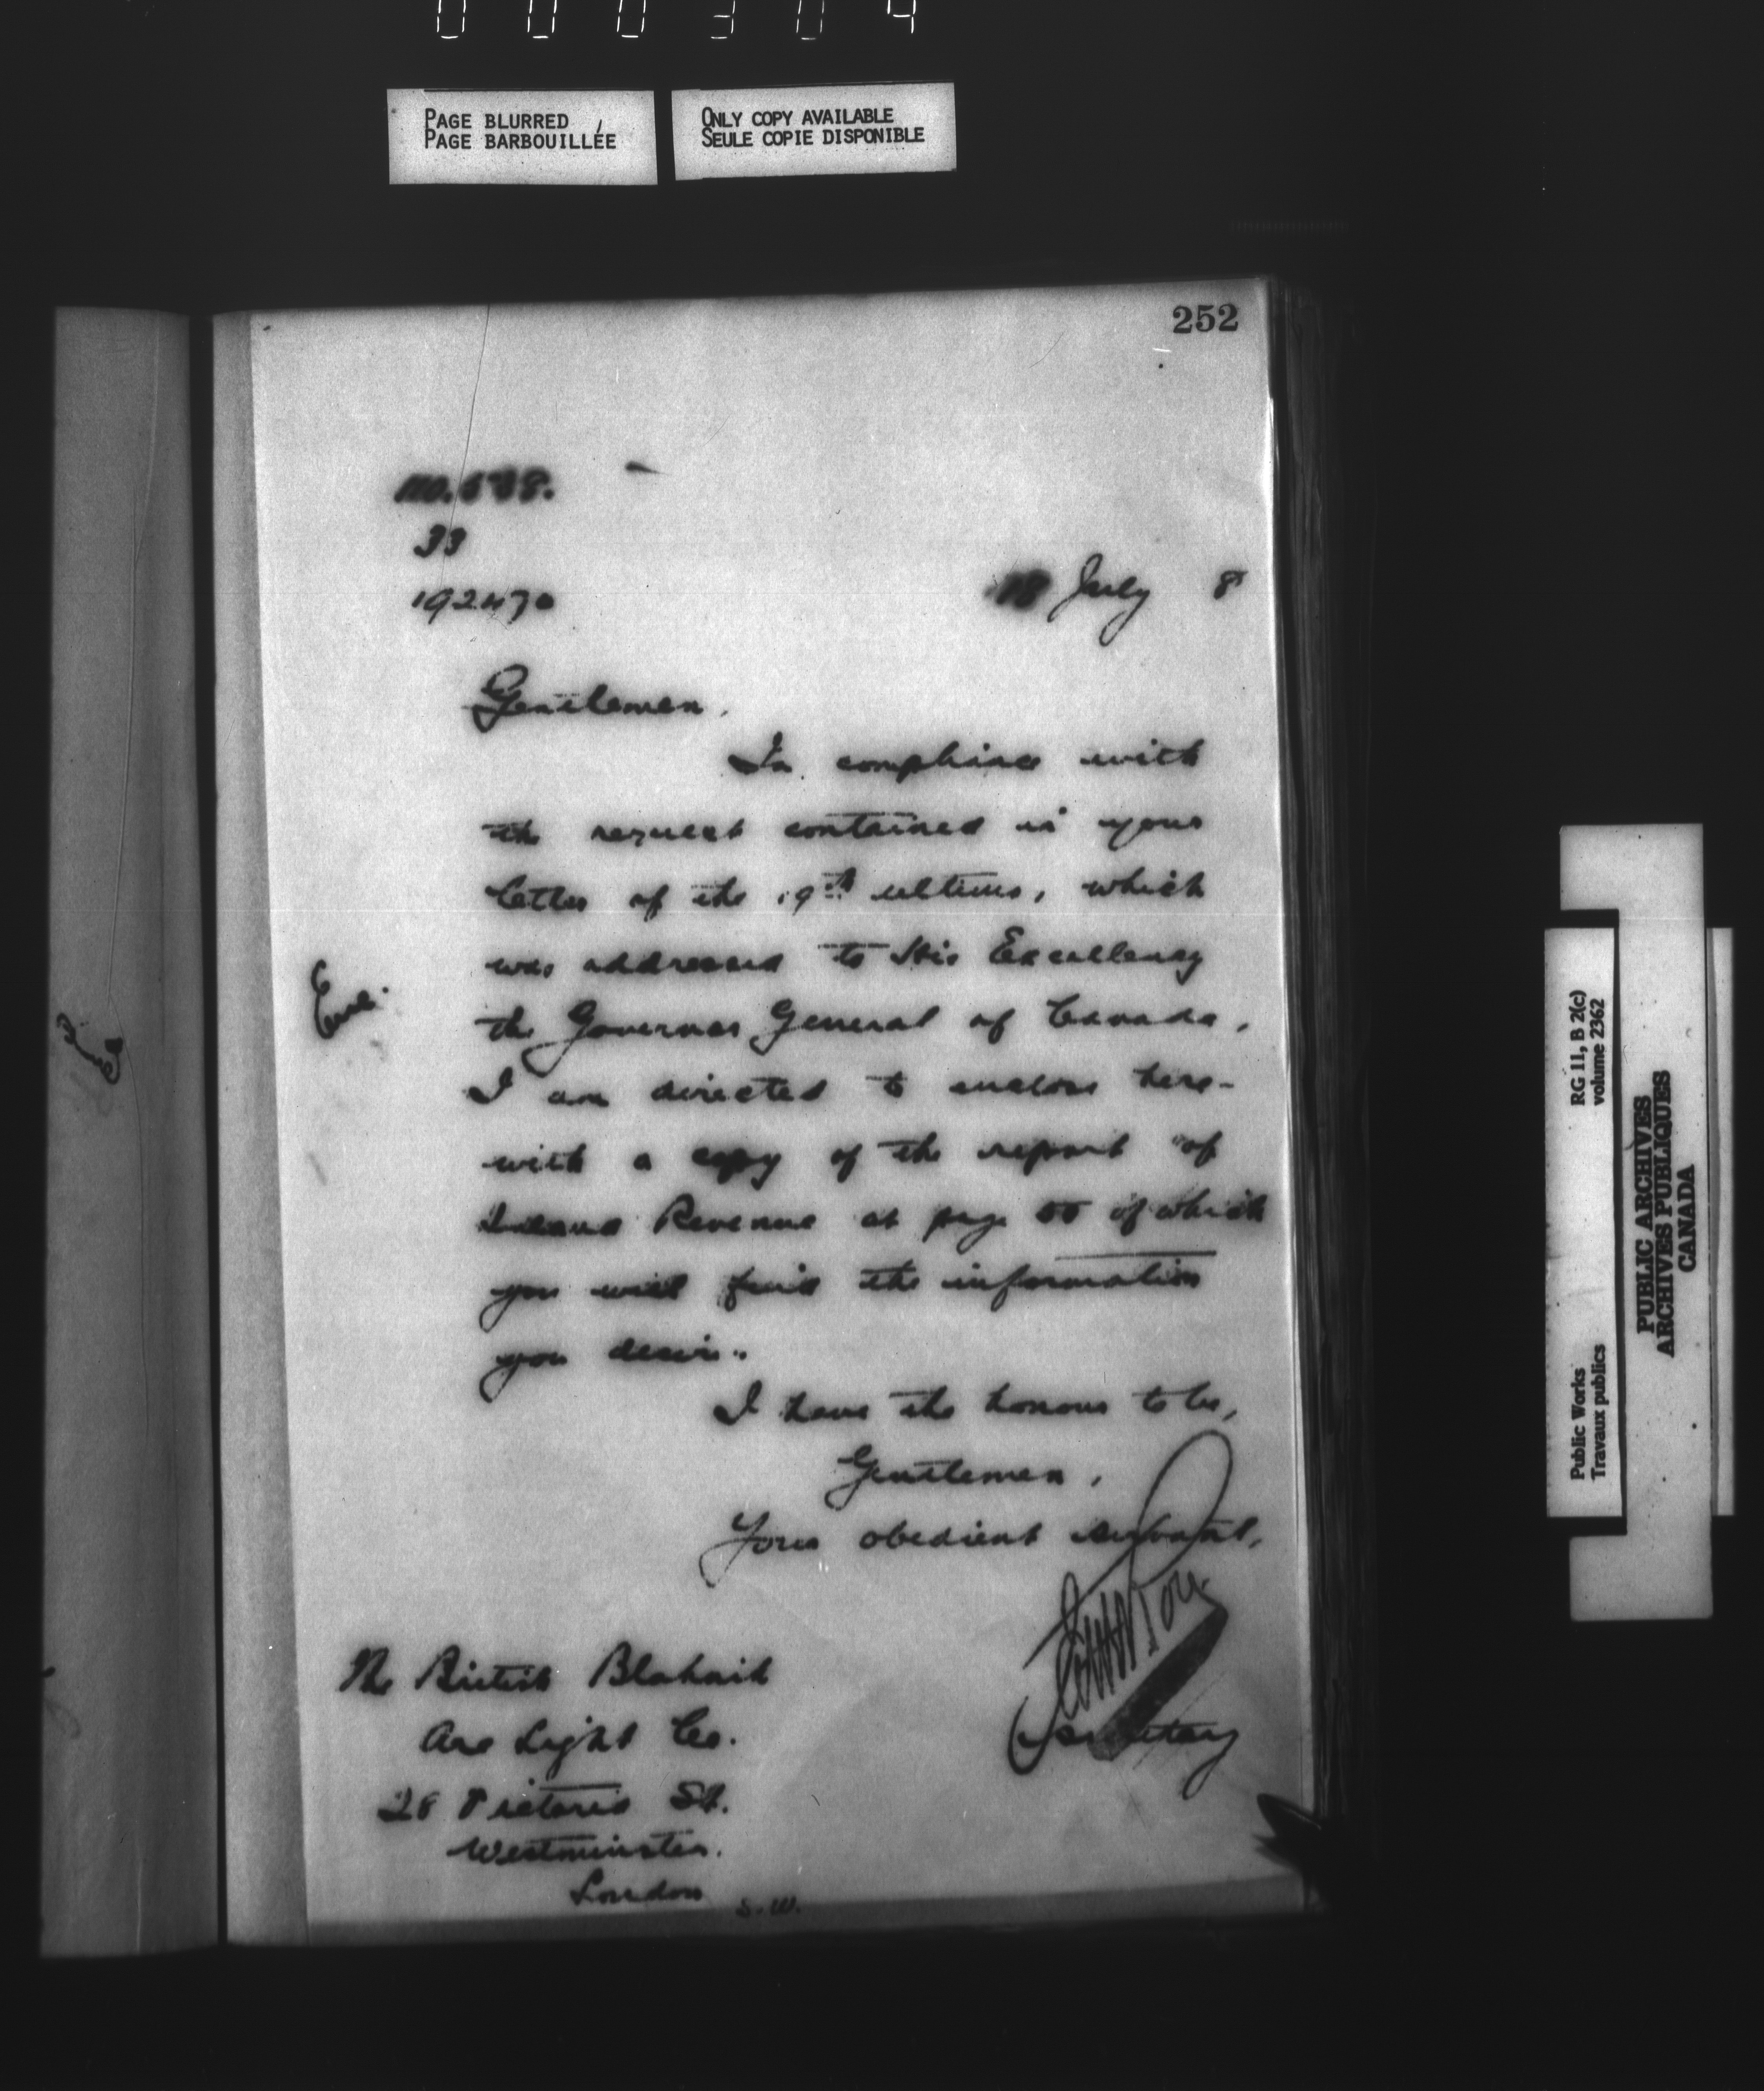 000304
PAGE BLURRED
PAGE BARBOUILLÉE
ONLY COPY AVAILABLE
SEULE COPIE DISPONIBLE
252
No. 688.
33
192470
18 July 8
Gentlemen,
In compliance with
the request contained in your
letter of the 19th ultimo, which
was addressed to His Excellency
Enc.
the Governor General of Canada,
I am directed to enclose here-
with a copy of the report of
Inland Revenue at page 55 of which
you will find the information
you desire.
I have the honour to be,
Gentlemen,
Your obedient servant,
Secretary
The British Blahnik
Arc Light Co.
28 Victoria St.
Westminster.
London S.W.
RG 11, B 2(c)
volume 2362
Public Works
Travaux publics
PUBLIC ARCHIVES
ARCHIVES PUBLIQUES
CANADA